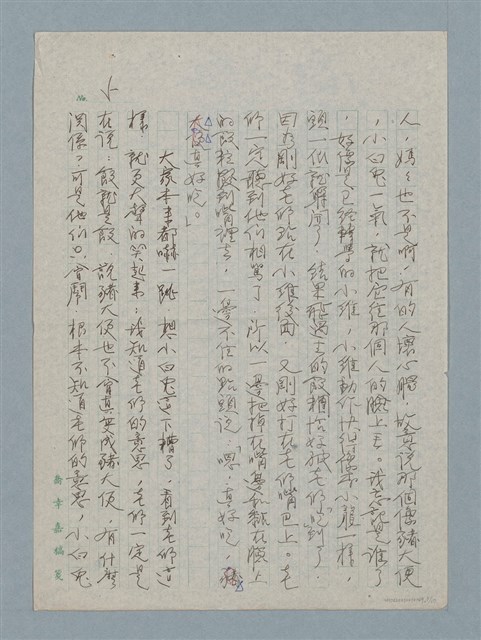 人,媽々也不是啊,有的人壞心腸,故意說那個像豬大便
,小白兔一氣,就把它往那個人的臉上丟。我忘記是誰了
,好像是已經轉學的小維,小維動作快得像小猴一樣,
頭一低就躲開了,結果飛過去的飯糰恰好被老師「吃」到了。
因為剛好老師站在小維後面,又剛好打在老師嘴巴上。老
師一定聽到他們相罵了,所以一邊把掉在嘴邊和黏在臉上
的飯粒撥到嘴裡去,一邊不住的點頭說:「嗯,真好吃,豬
大便真好吃。」
大家本來都嚇一跳,想小白兔這下糟了,看到老師這
樣,就更大聲的笑起來。我知道老師的意思,老師一定是
在說:飯就是飯,說豬大便也不會真變成豬大便,有什麼
関係?可是他們只會鬧,根本不知道老師的意思,小白兔
No.